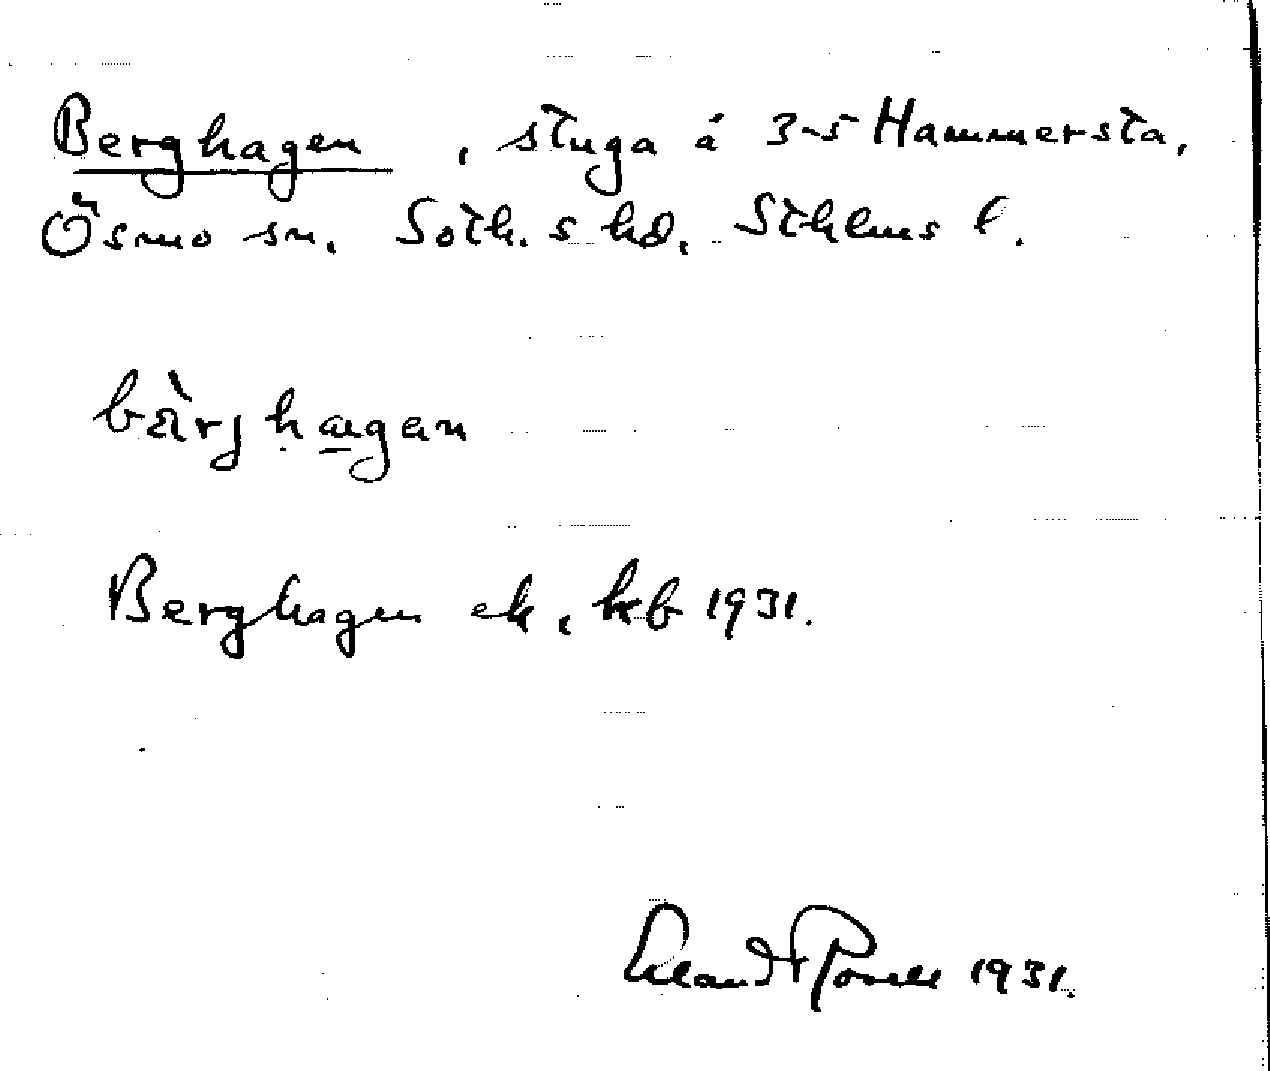 Berghagen, stuga å 3-5 Hammersta,
Ösmo sn. Soth. s hd. Sthlms l.
bàrjhagan
Berghagen ek. kb 1931.
Erland Rosell 1931.